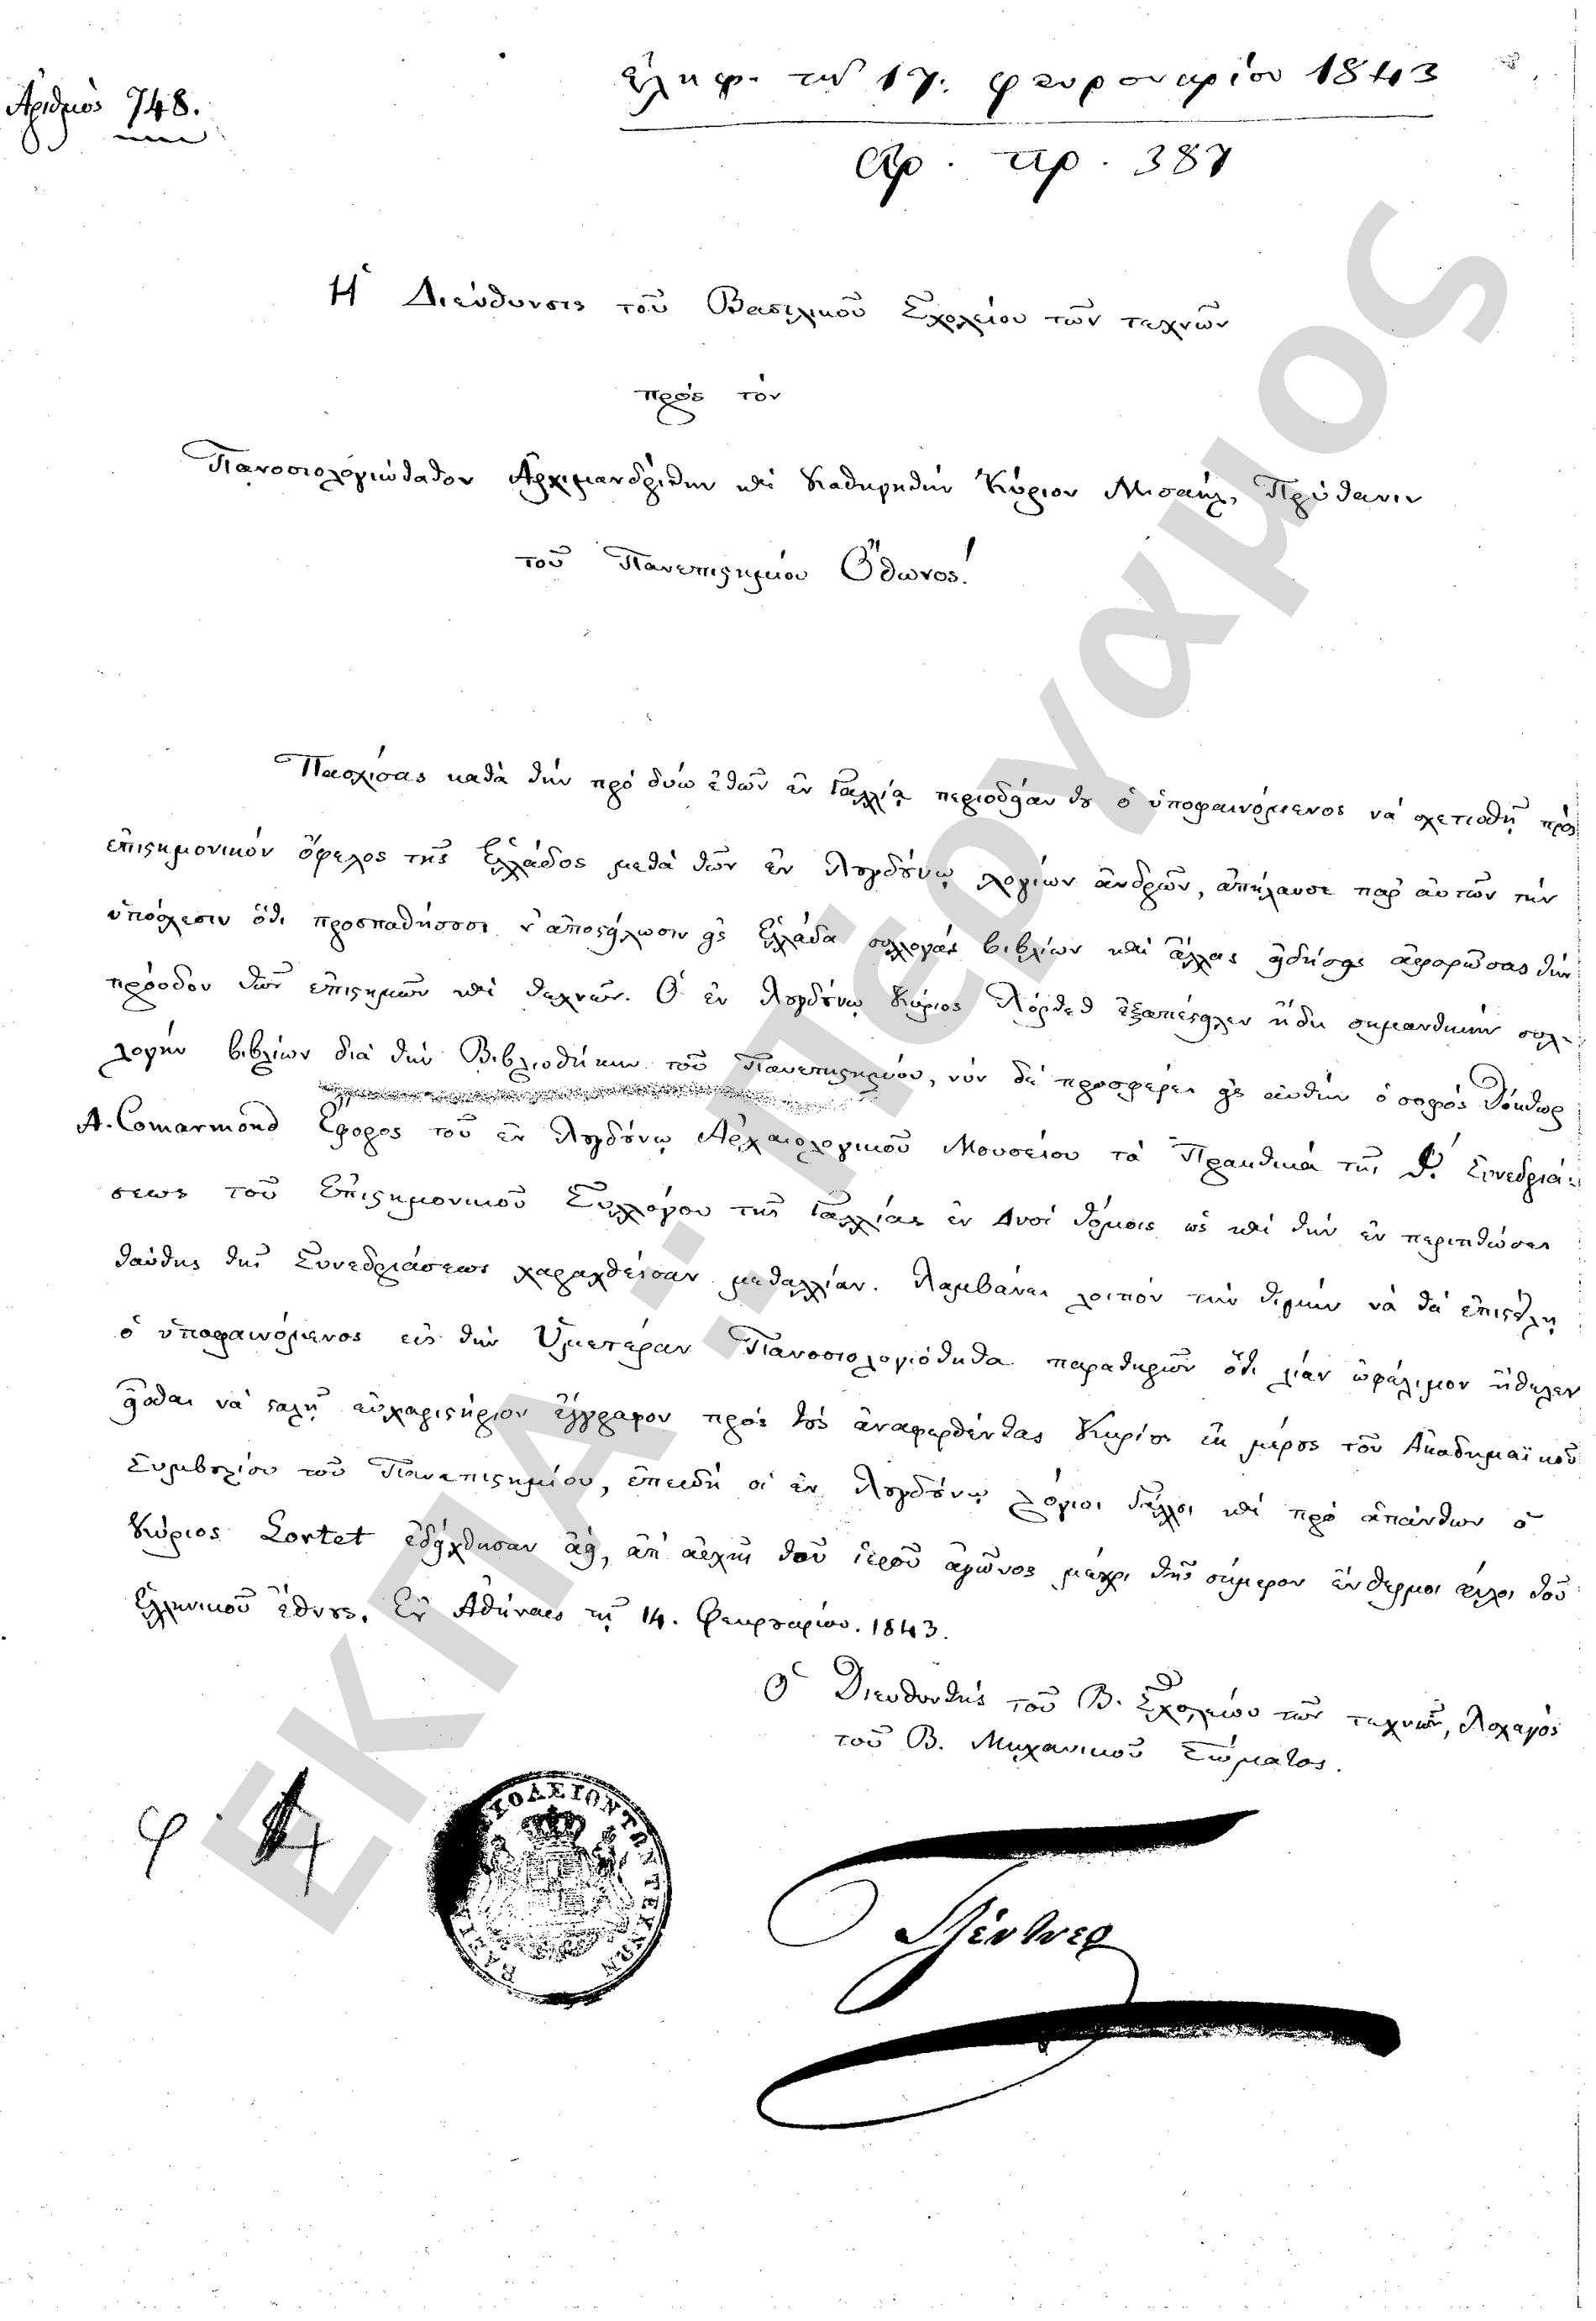 Ἀριθμὸς 748.
ἐλήφ. τῇ 17. φευρουαρίου 1843
ἀρ. πρ. 387
Ἡ Διεύθυνσις τοῦ Βασιλικοῦ Σχολείου τῶν τεχνῶν
πρὸς τὸν
Πανοσιολογιώτατον Ἀρχιμανδρίτην καὶ Καθηγητὴν Κύριον Μισαὴλ, Πρύτανιν
τοῦ Πανεπιστημίου Ὄθωνος!
Πασχίσας κατὰ τὴν πρὸ δύω ἐτῶν ἐν Γαλλίᾳ περιοδείαν του ὁ ὑποφαινόμενος νὰ σχετισθῇ πρὸς
ἐπιστημονικὸν ὄφελος τῆς Ἑλλάδος μετὰ τῶν ἐν Λουγδούνῳ λογίων ἀνδρῶν, ἀπήλαυσε παρ' αὐτῶν τὴν
ὑπόσχεσιν ὅτι προσπαθήσουσι ν' ἀποστείλωσιν εἰς Ἑλλάδα συλλογὰς βιβλίων καὶ ἄλλας εἰδήσεις ἀφορώσας τὴν
πρόοδον τῶν ἐπιστημῶν καὶ τεχνῶν. Ὁ ἐν Λουγδούνῳ Κύριος Λόρτετ ἐξαπέστειλεν ἤδη σημαντικὴν συλ-
λογὴν βιβλίων διὰ τὴν Βιβλιοθήκην τοῦ Πανεπιστημίου, νῦν δὲ προσφέρει εἰς αὐτὴν ὁ σοφὸς Δόκτωρ
A. Comarmond Ἔφορος τοῦ ἐν Λουγδούνῳ Ἀρχαιολογικοῦ Μουσείου τὰ Πρακτικὰ τῆς Θ'. Συνεδριά-
σεως τοῦ Ἐπιστημονικοῦ Συλλόγου τῆς Γαλλίας ἐν δυσὶ τόμοις ὡς καὶ τὴν ἐν περιπτώσει
ταύτης τῆς Συνεδριάσεως χαραχθεῖσαν μεταλλίαν. Λαμβάνει λοιπὸν τὴν τιμὴν νὰ τὰ ἐπιστείλῃ
ὁ ὑποφαινόμενος εἰς τὴν Ὑμετέραν Πανοσιολογιότητα παρατηρῶν ὅτι λίαν ὠφέλιμον ἤθελεν
εἶσθαι νὰ σταλῇ εὐχαριστήριον ἔγγραφον πρὸς τοὺς ἀναφερθέντας Κυρίους ἐκ μέρους τοῦ Ἀκαδημαϊκοῦ
Συμβουλίου τοῦ Πανεπιστημίου, ἐπειδὴ οἱ ἐν Λουγδούνῳ λόγιοι Γάλλοι καὶ πρὸ ἁπάντων ὁ
Κύριος Lortet ἐδείχθησαν ἀεὶ, ἀπ' ἀρχῆς τοῦ ἱεροῦ ἀγῶνος μέχρι τῆς σήμερον ἔνθερμοι φίλοι τοῦ
Ἑλληνικοῦ ἔθνους. Ἐν Ἀθήναις τῇ 14. Φεβρουαρίου. 1843.
Ὁ Διευθυντὴς τοῦ Β. Σχολείου τῶν τεχνῶν, Λοχαγὸς
τοῦ Β. Μηχανικοῦ Σώματος.
ΒΑΣΙ ΣΧΟΛΕΙΟΝ ΤΩΝ ΤΕΧΝΩΝ
ΕΚΠΑ: Πέργαμος